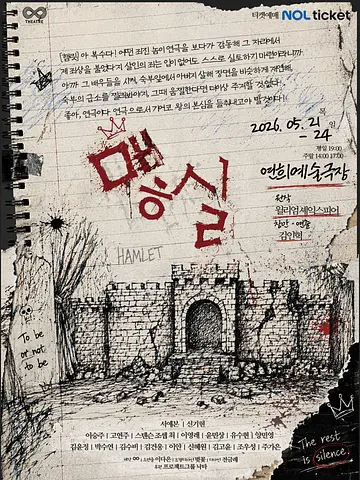 THEATRE
티켓예매 NOL ticket
[햄릿] 아, 복수다! 어떤 죄진 놈이 연극을 보다가 감동해 그 자리에서
제 죄상을 불었다지. 살인의 죄는 입이 없어도, 스스로 실토하기 마련이라니까.
아까 그 배우들을 시켜, 숙부앞에서 아버지 살해 장면을 비슷하게 재연해,
숙부의 급소를 찔러봐야지, 그때 움찔한다면 더이상 주저할 것 없다.
좋아, 연극이다. 연극으로서 기어코 왕의 본심을 들춰내고야 말 것이다!
2026. 05. 21 목
- 24 일
평일 19:00
주말 14:00 17:00
연희예술극장
맴하실
HAMLET
원작
윌리엄 셰익스피어
각안 · 연출
김인혁
To be
or not to
be
서예본 | 신기현
이승주 | 고연주 | 스탠슨 조셉 리 | 이영래 | 윤민상 | 유수현 | 양민영
김윤정 | 박수연 | 김수미 | 김건웅 | 이안 | 신혜원 | 김고운 | 조우성 | 주가은
이다은 | 빛꽃 | 전글래
프로젝트그룹 낙타
The rest
is silence.